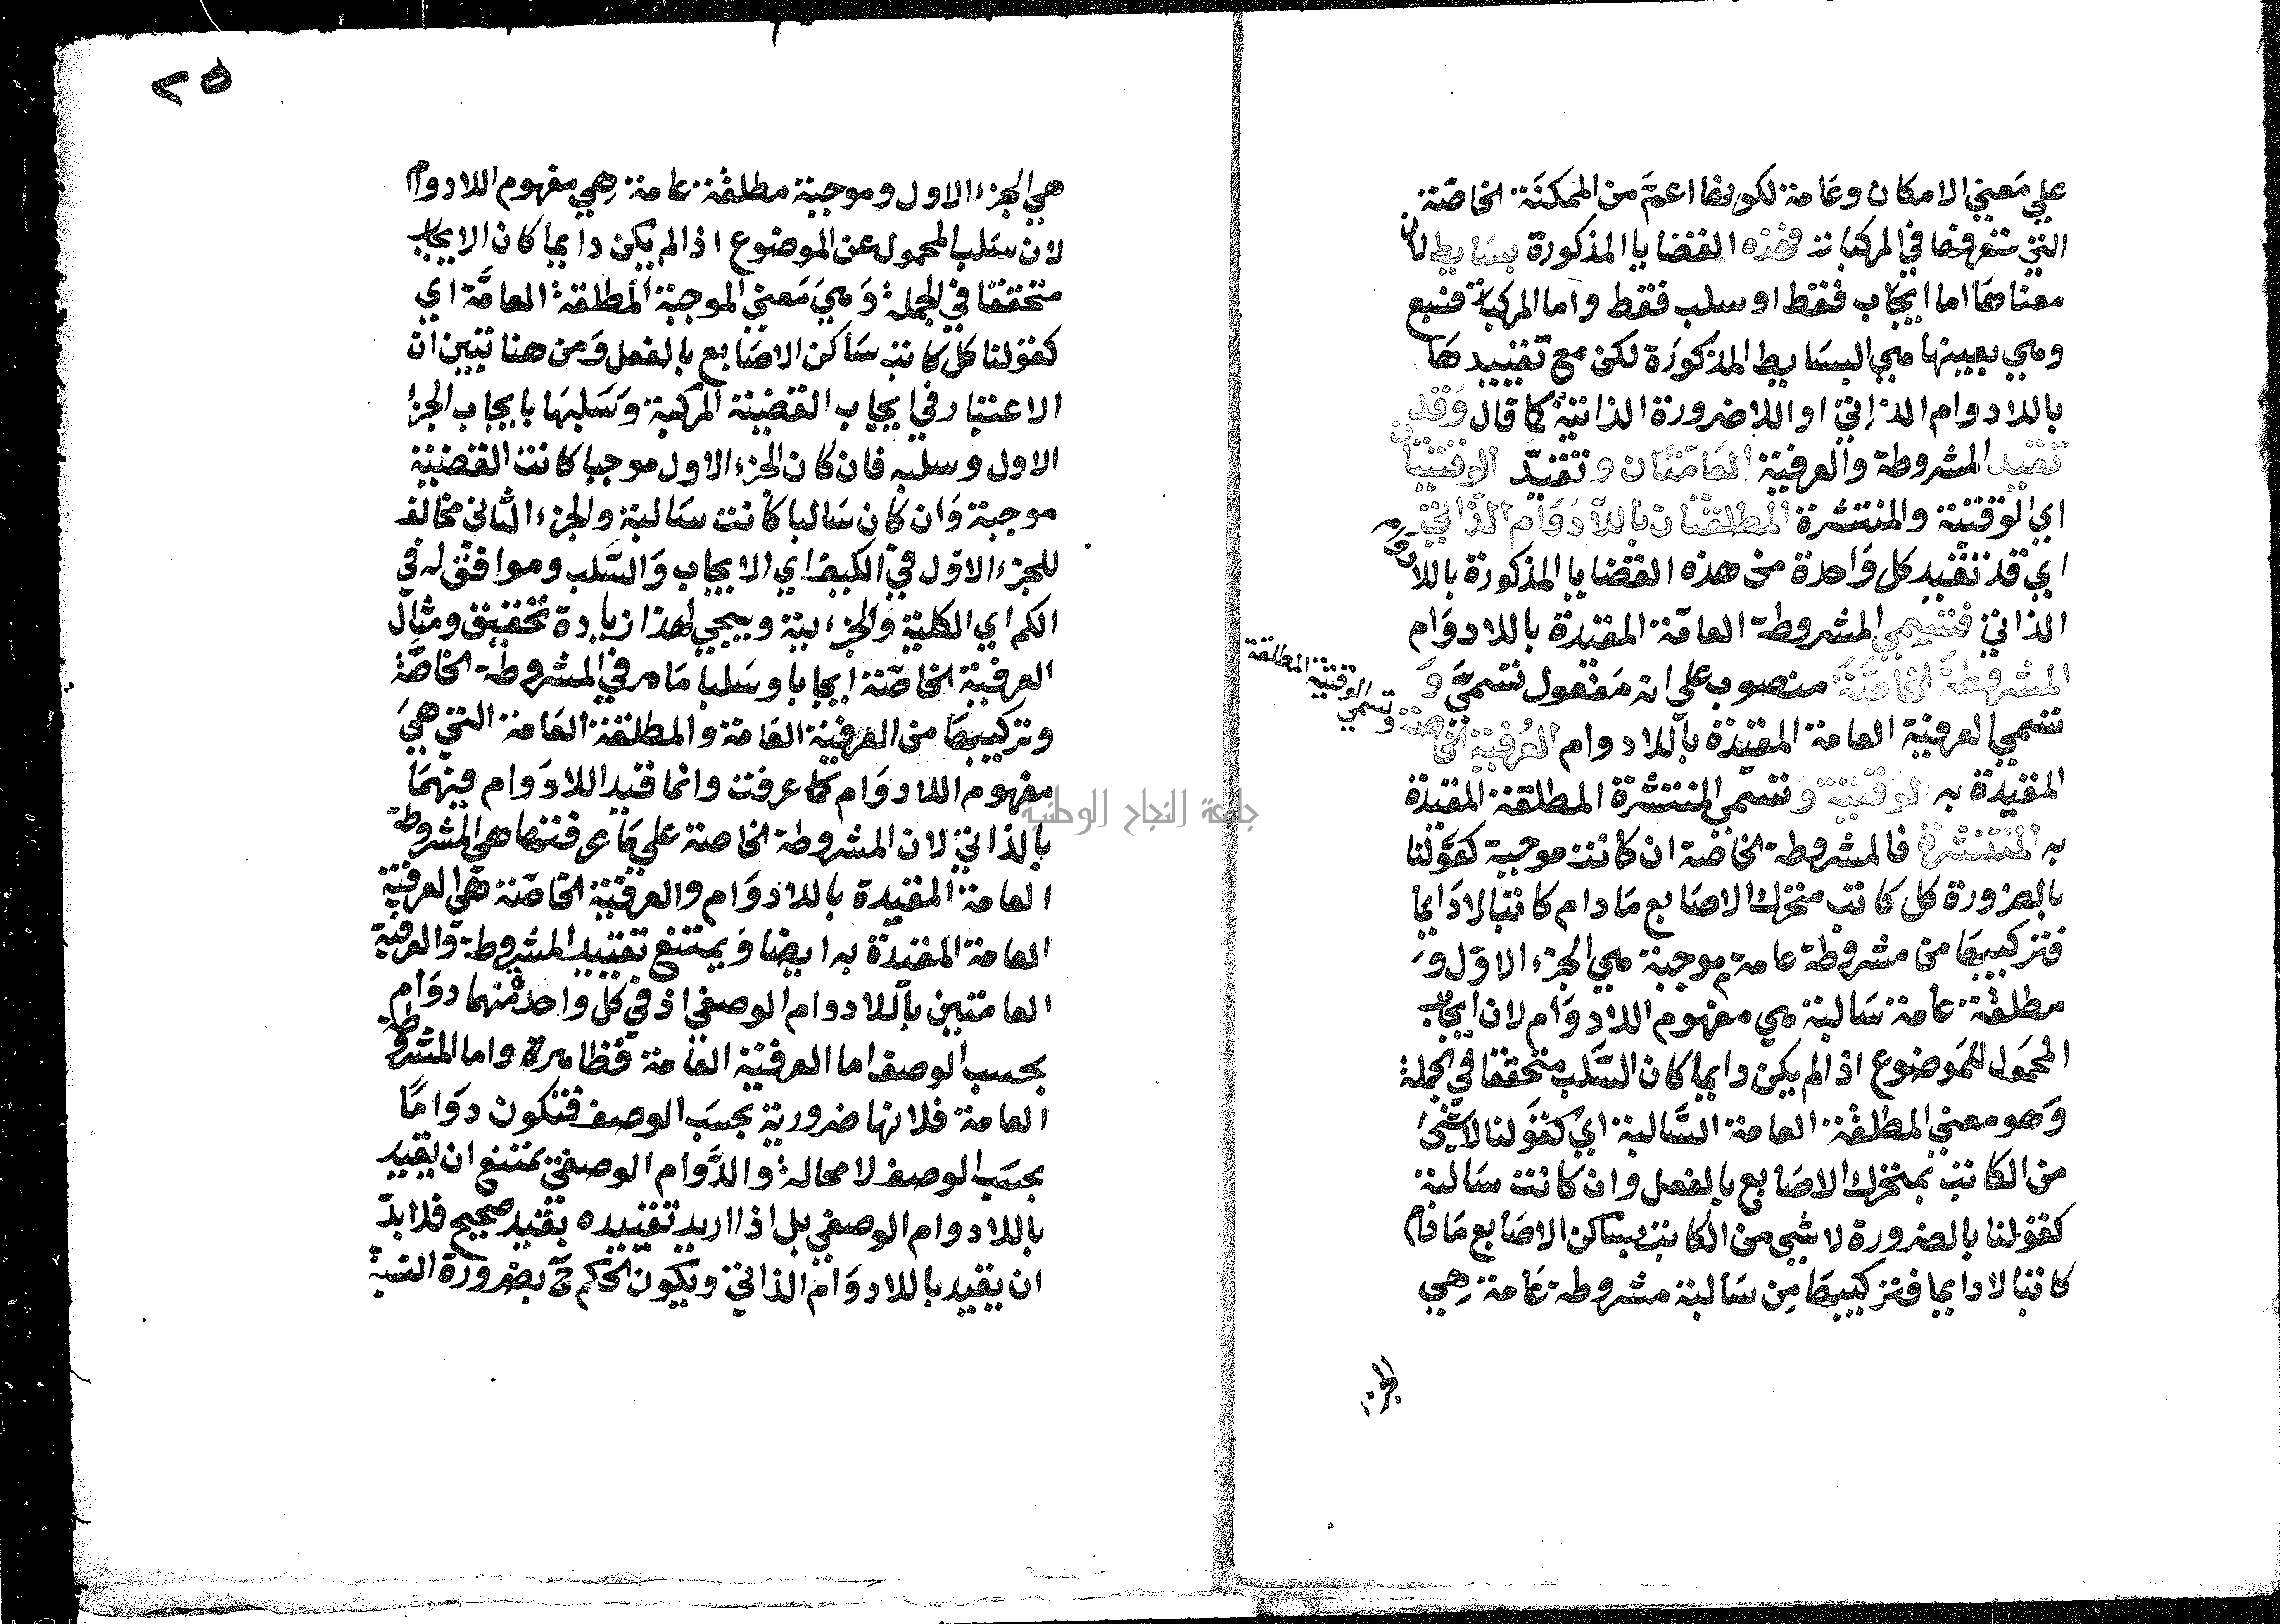 علي مَعني الامكان وعَامة لكونها اعمَّ من الممكنَة الخاصَّة
التي ستعرفها في المركبات فهذه القضايا المذكورة بسَايط لان
معناهَا اما ايجَاب فقط او سلب فقط واما المركبة فسبع
وهي بعينها هي البسَايط المذكورَة لكن مع تقييدهَا
باللادوام الذاتي او اللاضرورة الذاتية كما قال وَقد
تقيد المشروطة والعرفية العَامّتان وتقيّد الوقتيتان
اي الوقتية والمنتشرة المطلقتان باللادَوَام الذَّاتي
اي قد تقيد كل وَاحدة من هذه القضايا المذكورة باللادوَام
الذاتي فتسمي المشروطة العامّة المقيدة باللادوَام
المشروطَة الخاصَّةَ منصوب علي انه مَفعول تسميَّ وَ
تسمي العرفية العامة المقيدة باللادوام العُرفية الخاصة وتسمي الوقتية المطلقة
المقيدة به الوَقتية وَتسمى المنتشرة المطلقة المقيدة
به المنتشرة فالمشروطة الخاصة ان كانت موجبة كقَولنا
بالضرورة كل كاتب متحرك الاصَابع مَا دام كاتبا لا دَايما
فتركيبهَا من مشروطة عامة موجبة هي الجزء الاوّل وَ
مطلقة عامة سَالبة هي مفهوم اللادوَام لان ايجاب
المحمَول للمَوضوع اذا لم يكن دايما كان السَّلب متحققا في الجملة
وَهو معني المطلقة العامة السَّالبة اي كقَولنا لاشَيْئَ
من الكاتب بمتحرك الاصَابع بالفعل وان كانت سَالبة
كقولنا بالضرورة لا شيي من الكاتب بسَاكن الاصَابع مَا دَام
كاتبا لا دايما فتركيبهَا مِن سَالبة مشروطة عَامة هِي
الجزء
٢٥
هي الجزء الاول وموجبة مطلقة عامة هِي مفهوم اللادوام
لان سَلب المحمول عن الموضوع اذا لم يكن دايما كان الايجاب
متحققا في الجملة وَهيَ مَعني الموجبة المطلقة العامَّة اي
كقولنا كل كاتب سَاكن الاصَابع بالفعل وَمن هنا تبين ان
الاعتبار في ايجاب القضية المركبة وَسَلبهَا بايجاب الجزء
الاول وسلبه فان كان الجزء الاول موجبا كانت القضية
موجبة وَان كان سَالبا كانت سَالبة والجزء الثاني مخالف
للجزء الاوّل في الكيف اي الايجاب وَالسَّلب وموافق له في
الكم اي الكلية والجزءيية وييجي لهذا زيادة تحقيق ومثال
العرفية الخاصّة ايجابا وسَلبا مَا مر في المشروطة الخاصَّة
وتركيبهَا من العرفية العَامة والمطلقة العَامة التي هيَ
مفهوم اللادوَام كما عرفت وانما قيد اللادَوَام فيهمَا
بالذاتي لان المشروطة الخاصة علي مَا عرفتها هي المشروطة
العامة المقيدة باللادوَام والعرفية الخاصّة هي العرفية
العامة المقيدة به ايضا وَيمتنع تقييد المشروطة والعرفية
العامتين باللادوام الوصفي اذ في كل واحدة منهما دوَام
بحسب الوصف اما العرفية العَامة فظاهرة واما المشروطة
العامة فلانها ضرورية بحسَب الوصف فتكون دوَامًا
بحسَب الوصف لا محالة والدَّوام الوصفي يمتنع ان يقيد
باللادوام الوصفي بل اذا اريد تقييده بقيد صحيح فلا بدّ
ان يقيد باللادوَام الذاتي ويكون الحكم ح بضرورة النسبة
جامعة النجاح الوطنية